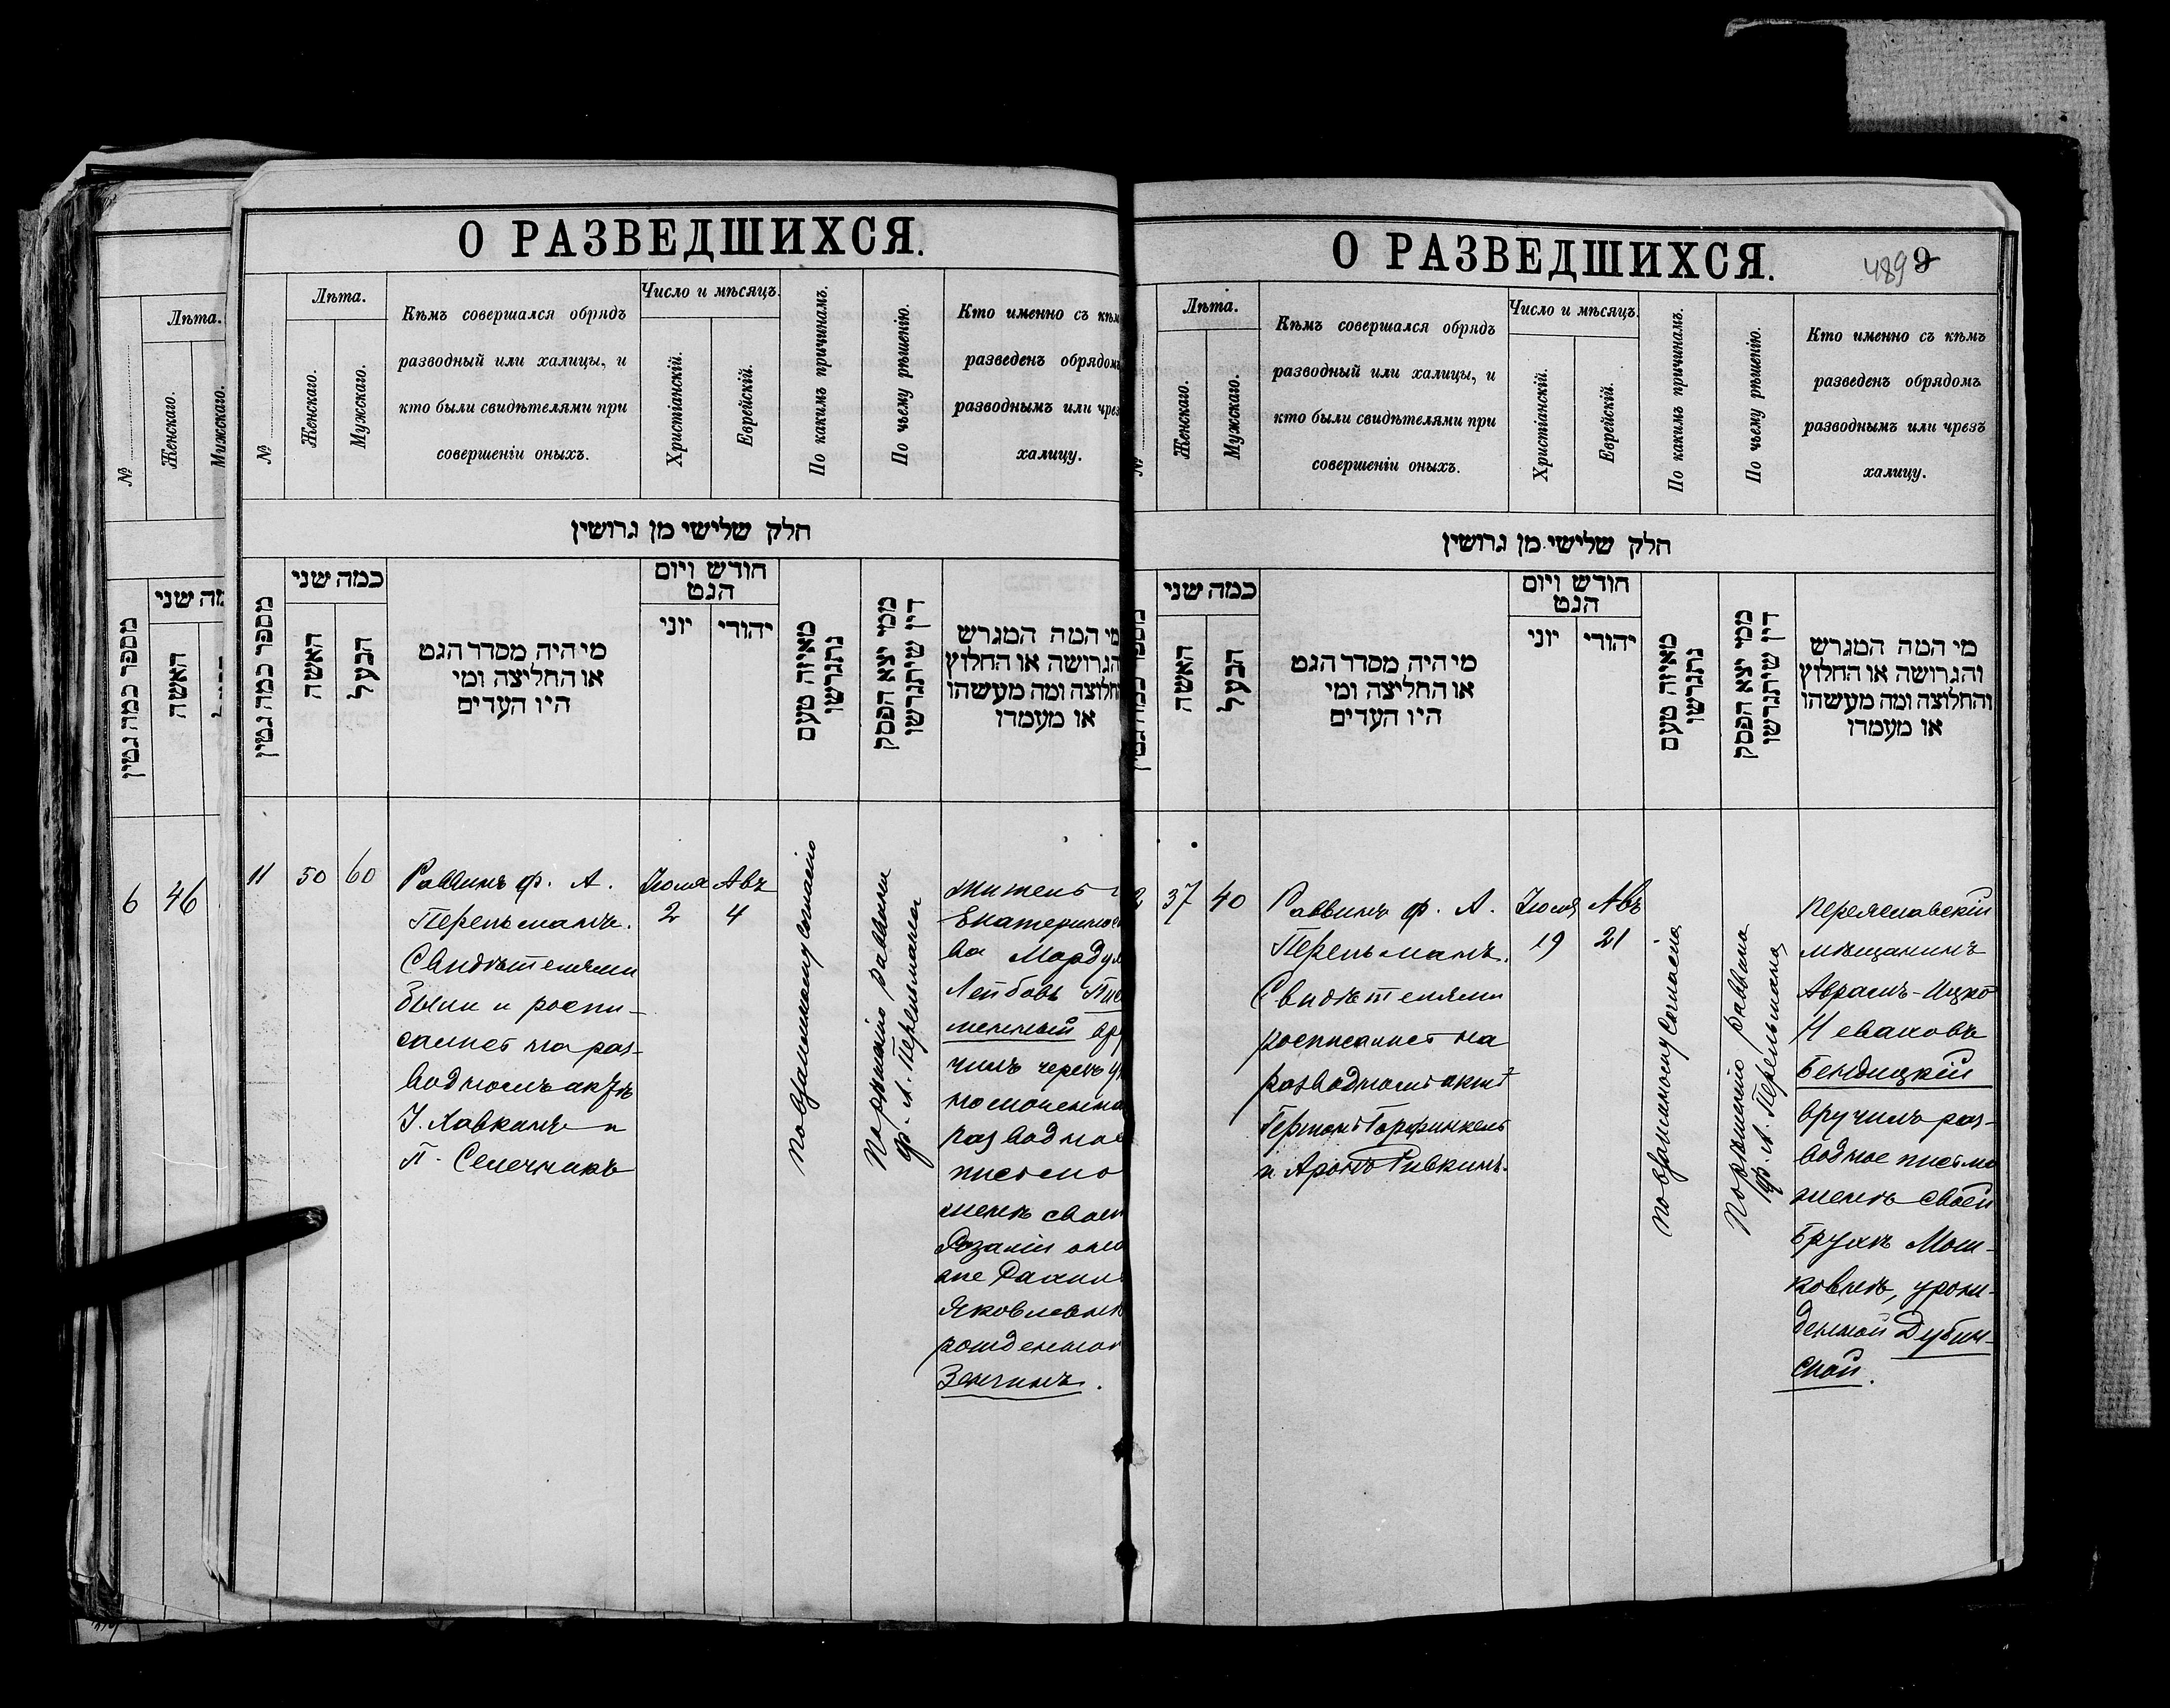 Лѣта.
№
Женскаго.
Мужскаго.
מספר כמה גטין
האשה
6 46
О РАЗВЕДШИХСЯ.
№
Лѣта.
Женскаго.
Мужскаго.
Кѣмъ совершался обрядъ
разводный или халицы, и
кто были свидѣтелями при
совершеніи оныхъ.
Число и мѣсяцъ.
Христіанскій.
Еврейскій.
По какимъ причинамъ.
По чьему рѣшенію.
Кто именно съ кѣмъ
разведенъ обрядомъ
разводнымъ или чрез
халицу.
חלק שלישי מן גרושין
מספר כמה גטין
כמה שני
האשה
הבעל
מי היה מסדר הגט
או החליצה ומי
היו העדים
חודש ויום
הגט
יוני
יהודי
מאיזה טעם
נתגרשו
ממי יצא הפסק
דין שיתגרשו
מי המה המגרש
והגרושה או החלוץ
והחלוצה ומה מעשהו
או מעמדו
11 50 60
Раввинъ ф. А.
Перельманъ.
Свидѣтелями
были и роспи-
сались на раз-
водномъ актѣ
І. Хавкинъ и
П. Селечникъ
Іюля
2
Авъ
4
По взаимному согласію
По рѣшенію раввина
ф. А. Перельмана
житель г
Екатеринос
ва Мордух
Лейбовъ
менный вру
чилъ черезъ у
номоченна
разводное
письмо
женѣ своей
Розаліи она
же Рахиль
Яковлевнѣ
рожденной
Зенгинъ.
О РАЗВЕДШИХСЯ.
489
№
Лѣта.
Женскаго.
Мужскаго.
Кѣмъ совершался обрядъ
разводный или халицы, и
кто были свидѣтелями при
совершеніи оныхъ.
Число и мѣсяцъ.
Христіанскій.
Еврейскій.
По какимъ причинамъ.
По чьему рѣшенію.
Кто именно съ кѣмъ
разведенъ обрядомъ
разводнымъ или чрезъ
халицу.
חלק שלישי מן גרושין
מספר כמה גטין
כמה שני
האשה
הבעל
מי היה מסדר הגט
או החליצה ומי
היו העדים
חודש ויום
הגט
יוני
יהודי
מאיזה טעם
נתגרשו
ממי יצא הפסק
דין שיתגרשו
מי המה המגרש
והגרושה או החלוץ
והחלוצה ומה מעשהו
או מעמדו
2 37 40
Раввинъ ф. А.
Перельманъ.
Свидѣтелями
росписались на
разводномъ актѣ
Германъ Горфинкель
и Аронъ Ривкинъ.
Іюля
19
Авъ
21
По взаимному согласію
По рѣшенію раввина
ф. А. Перельмана
Переяславскій
мѣщанинъ
Аврамъ-Ицко
Невахов
Бендицкій
вручилъ раз-
водное письмо
женѣ своей
Брухѣ Мош-
ковнѣ, урож-
денной Дубин-
ской.